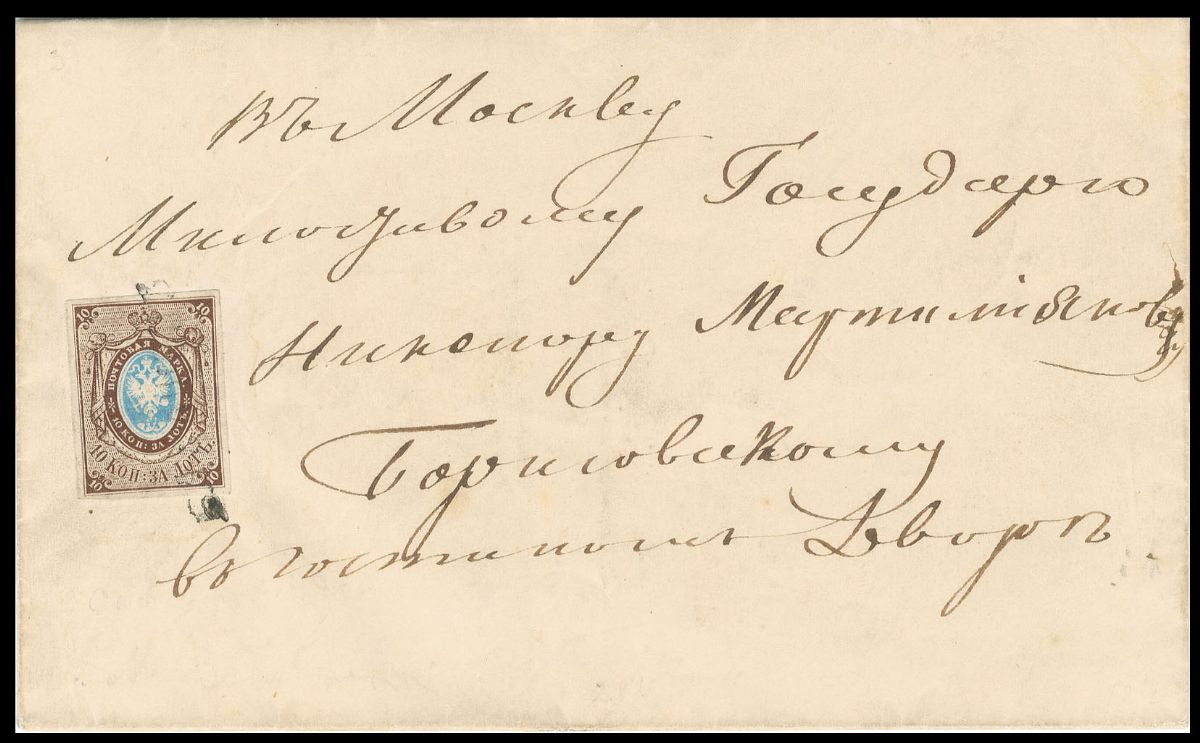 Въ Москву
Милостивому Государю
Никонору Мартимьянов
Борисовскому
въ гостиномъ Дворѣ.
10 10
ПОЧТОВАЯ МАРКА.
* 10 КОП: ЗА ЛОТЪ. *
10 КОП: ЗА ЛОТЪ.
10 10